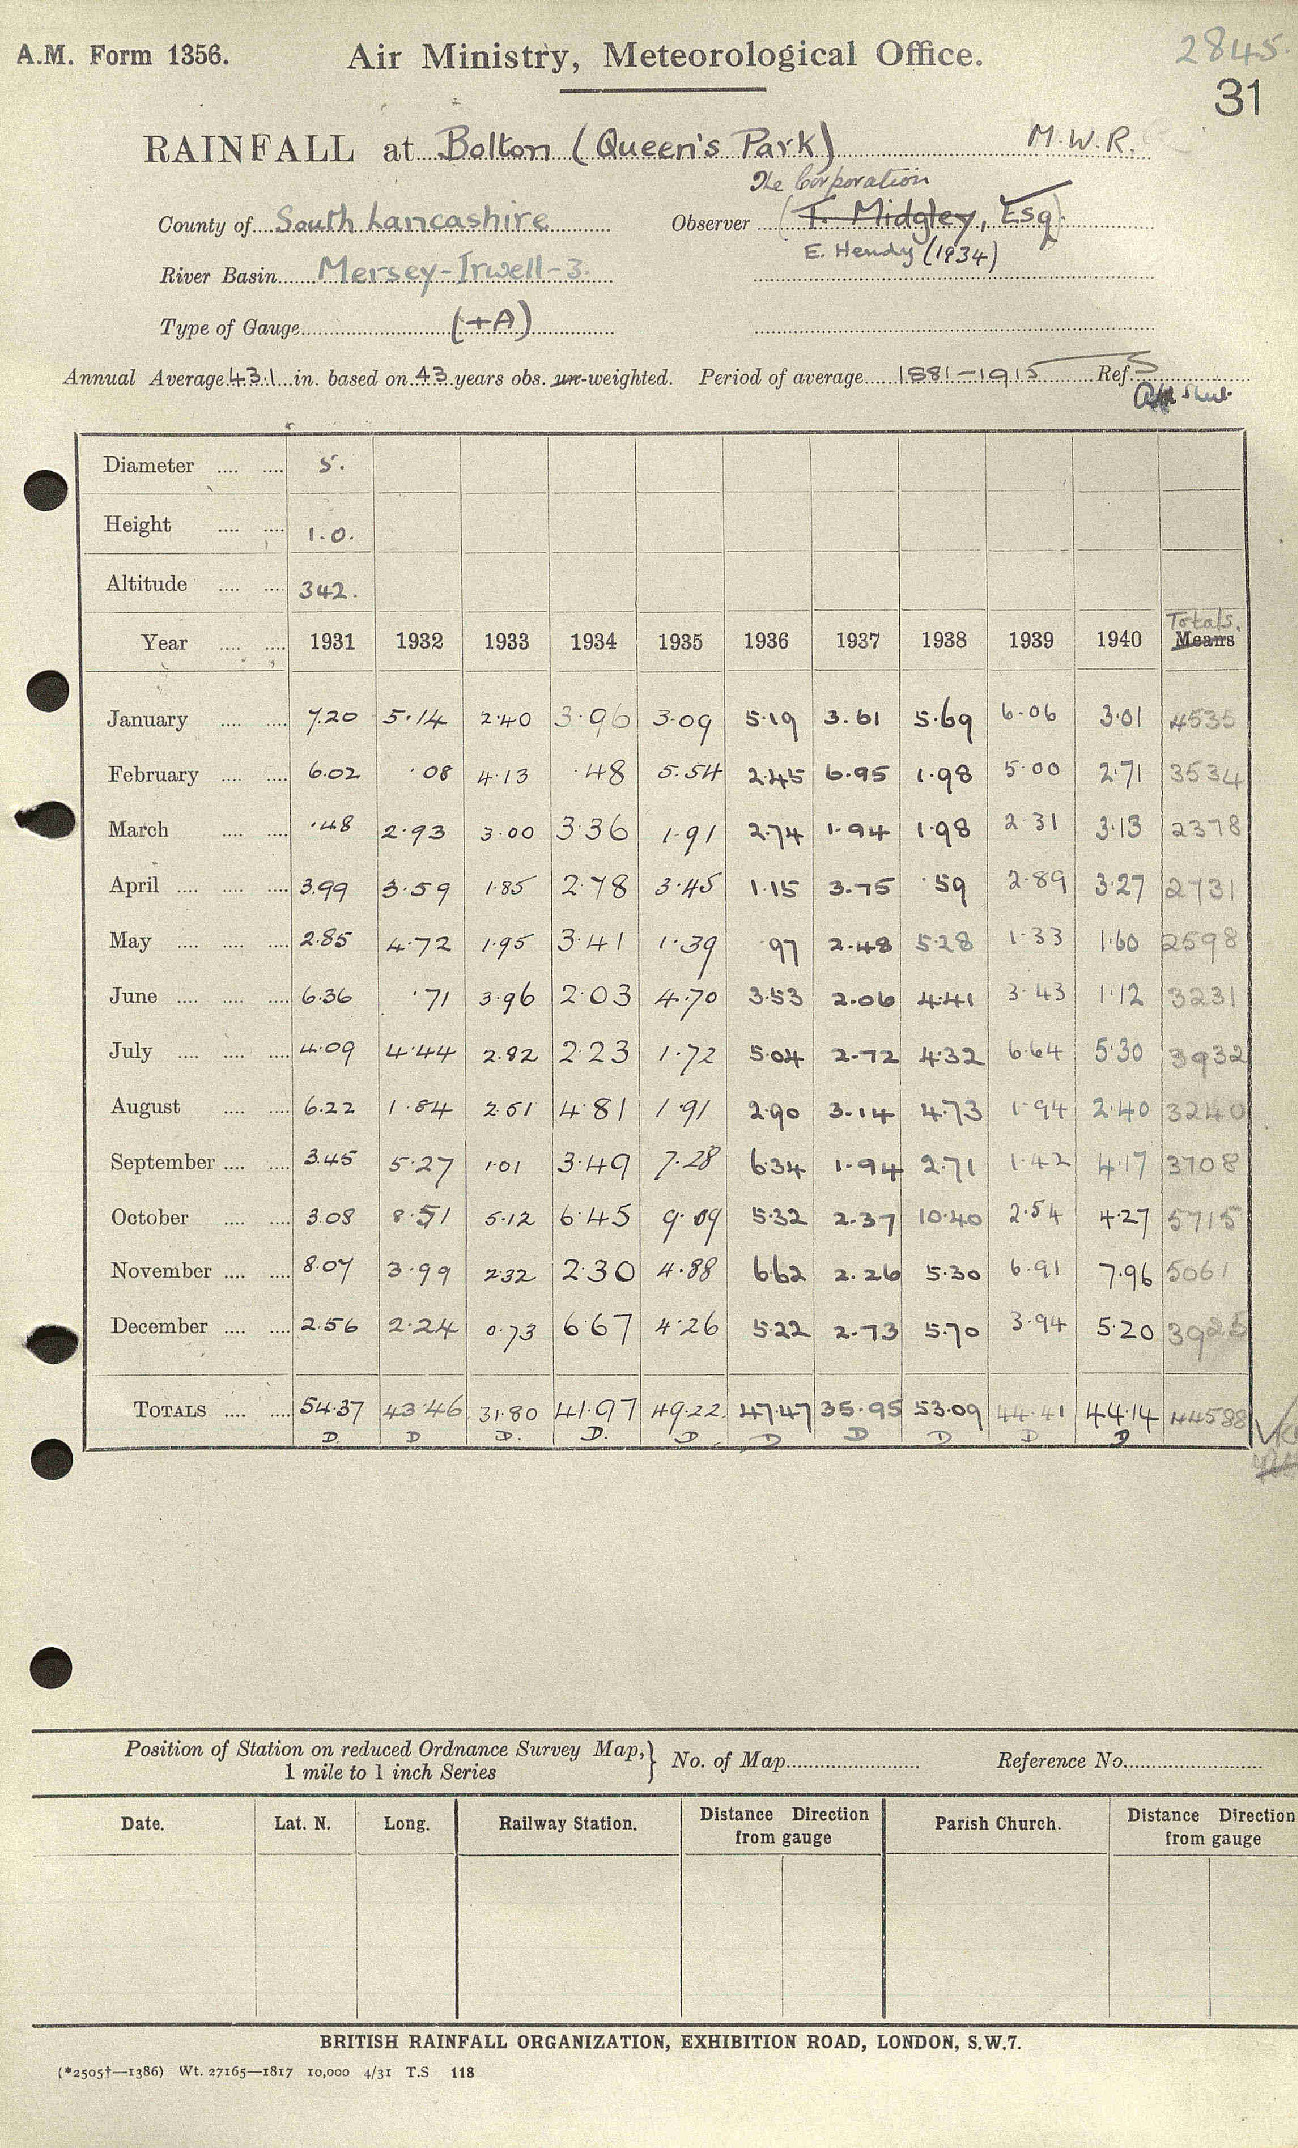 A.M. Form 1356. Air Ministry, Meteorological Office. 2845.
31
RAINFALL at Bolton (Queen's Park) M.W.R.
The Corporation
County of South Lancashire Observer (T. Midgley, Esq).
E. Hendy (1934)
River Basin Mersey-Irwell-3.
Type of Gauge (+A)
Annual Average 43.1 in. based on 43 years obs. un-weighted. Period of average 1881-1915 Ref. S
Diameter .... .... 5.
Height .... .... 1.0.
Altitude .... .... 342.
Totals.
Year .... .... 1931 1932 1933 1934 1935 1936 1937 1938 1939 1940 Means
January .... .... 7.20 5.14 2.40 3.96 3.09 5.19 3.61 5.69 6.06 3.01 4535
February .... .... 6.02 .08 4.13 .48 5.54 2.45 6.95 1.98 5.00 2.71 3534
March .... .... .48 2.93 3.00 3.36 1.91 2.74 1.94 1.98 2.31 3.13 2378
April .... .... .... 3.99 3.59 1.85 2.78 3.45 1.15 3.75 .59 2.89 3.27 2731
May .... .... .... 2.85 4.72 1.95 3.41 1.39 .97 2.48 5.28 1.33 1.60 2598
June .... .... .... 6.36 .71 3.96 2.03 4.70 3.53 2.06 4.41 3.43 1.12 3231
July .... .... .... 4.09 4.44 2.82 2.23 1.72 5.04 2.72 4.32 6.64 5.30 3932
August .... .... 6.22 1.84 2.51 4.81 1.91 2.90 3.14 4.73 1.94 2.40 3240
September .... .... 3.45 5.27 1.01 3.49 7.28 6.34 1.94 2.71 1.42 4.17 3708
October .... .... 3.08 8.51 5.12 6.45 9.09 5.32 2.37 10.40 2.54 4.27 5715
November .... .... 8.07 3.99 2.32 2.30 4.88 6.62 2.26 5.30 6.91 7.96 5061
December .... .... 2.56 2.24 0.73 6.67 4.26 5.22 2.73 5.70 3.94 5.20 3925
TOTALS .... .... 54.37 43.46 31.80 41.97 49.22 47.47 35.95 53.09 44.41 44.14 44588
D. D D. D. D D D D D D
Position of Station on reduced Ordnance Survey Map,} No. of Map Reference No.
1 mile to 1 inch Series
Date. Lat. N. Long. Railway Station. Distance Direction Parish Church. Distance Direction
from gauge from gauge
BRITISH RAINFALL ORGANIZATION, EXHIBITION ROAD, LONDON, S.W.7.
(*2505†—1386) Wt. 27165—1817 10,000 4/31 T.S 118